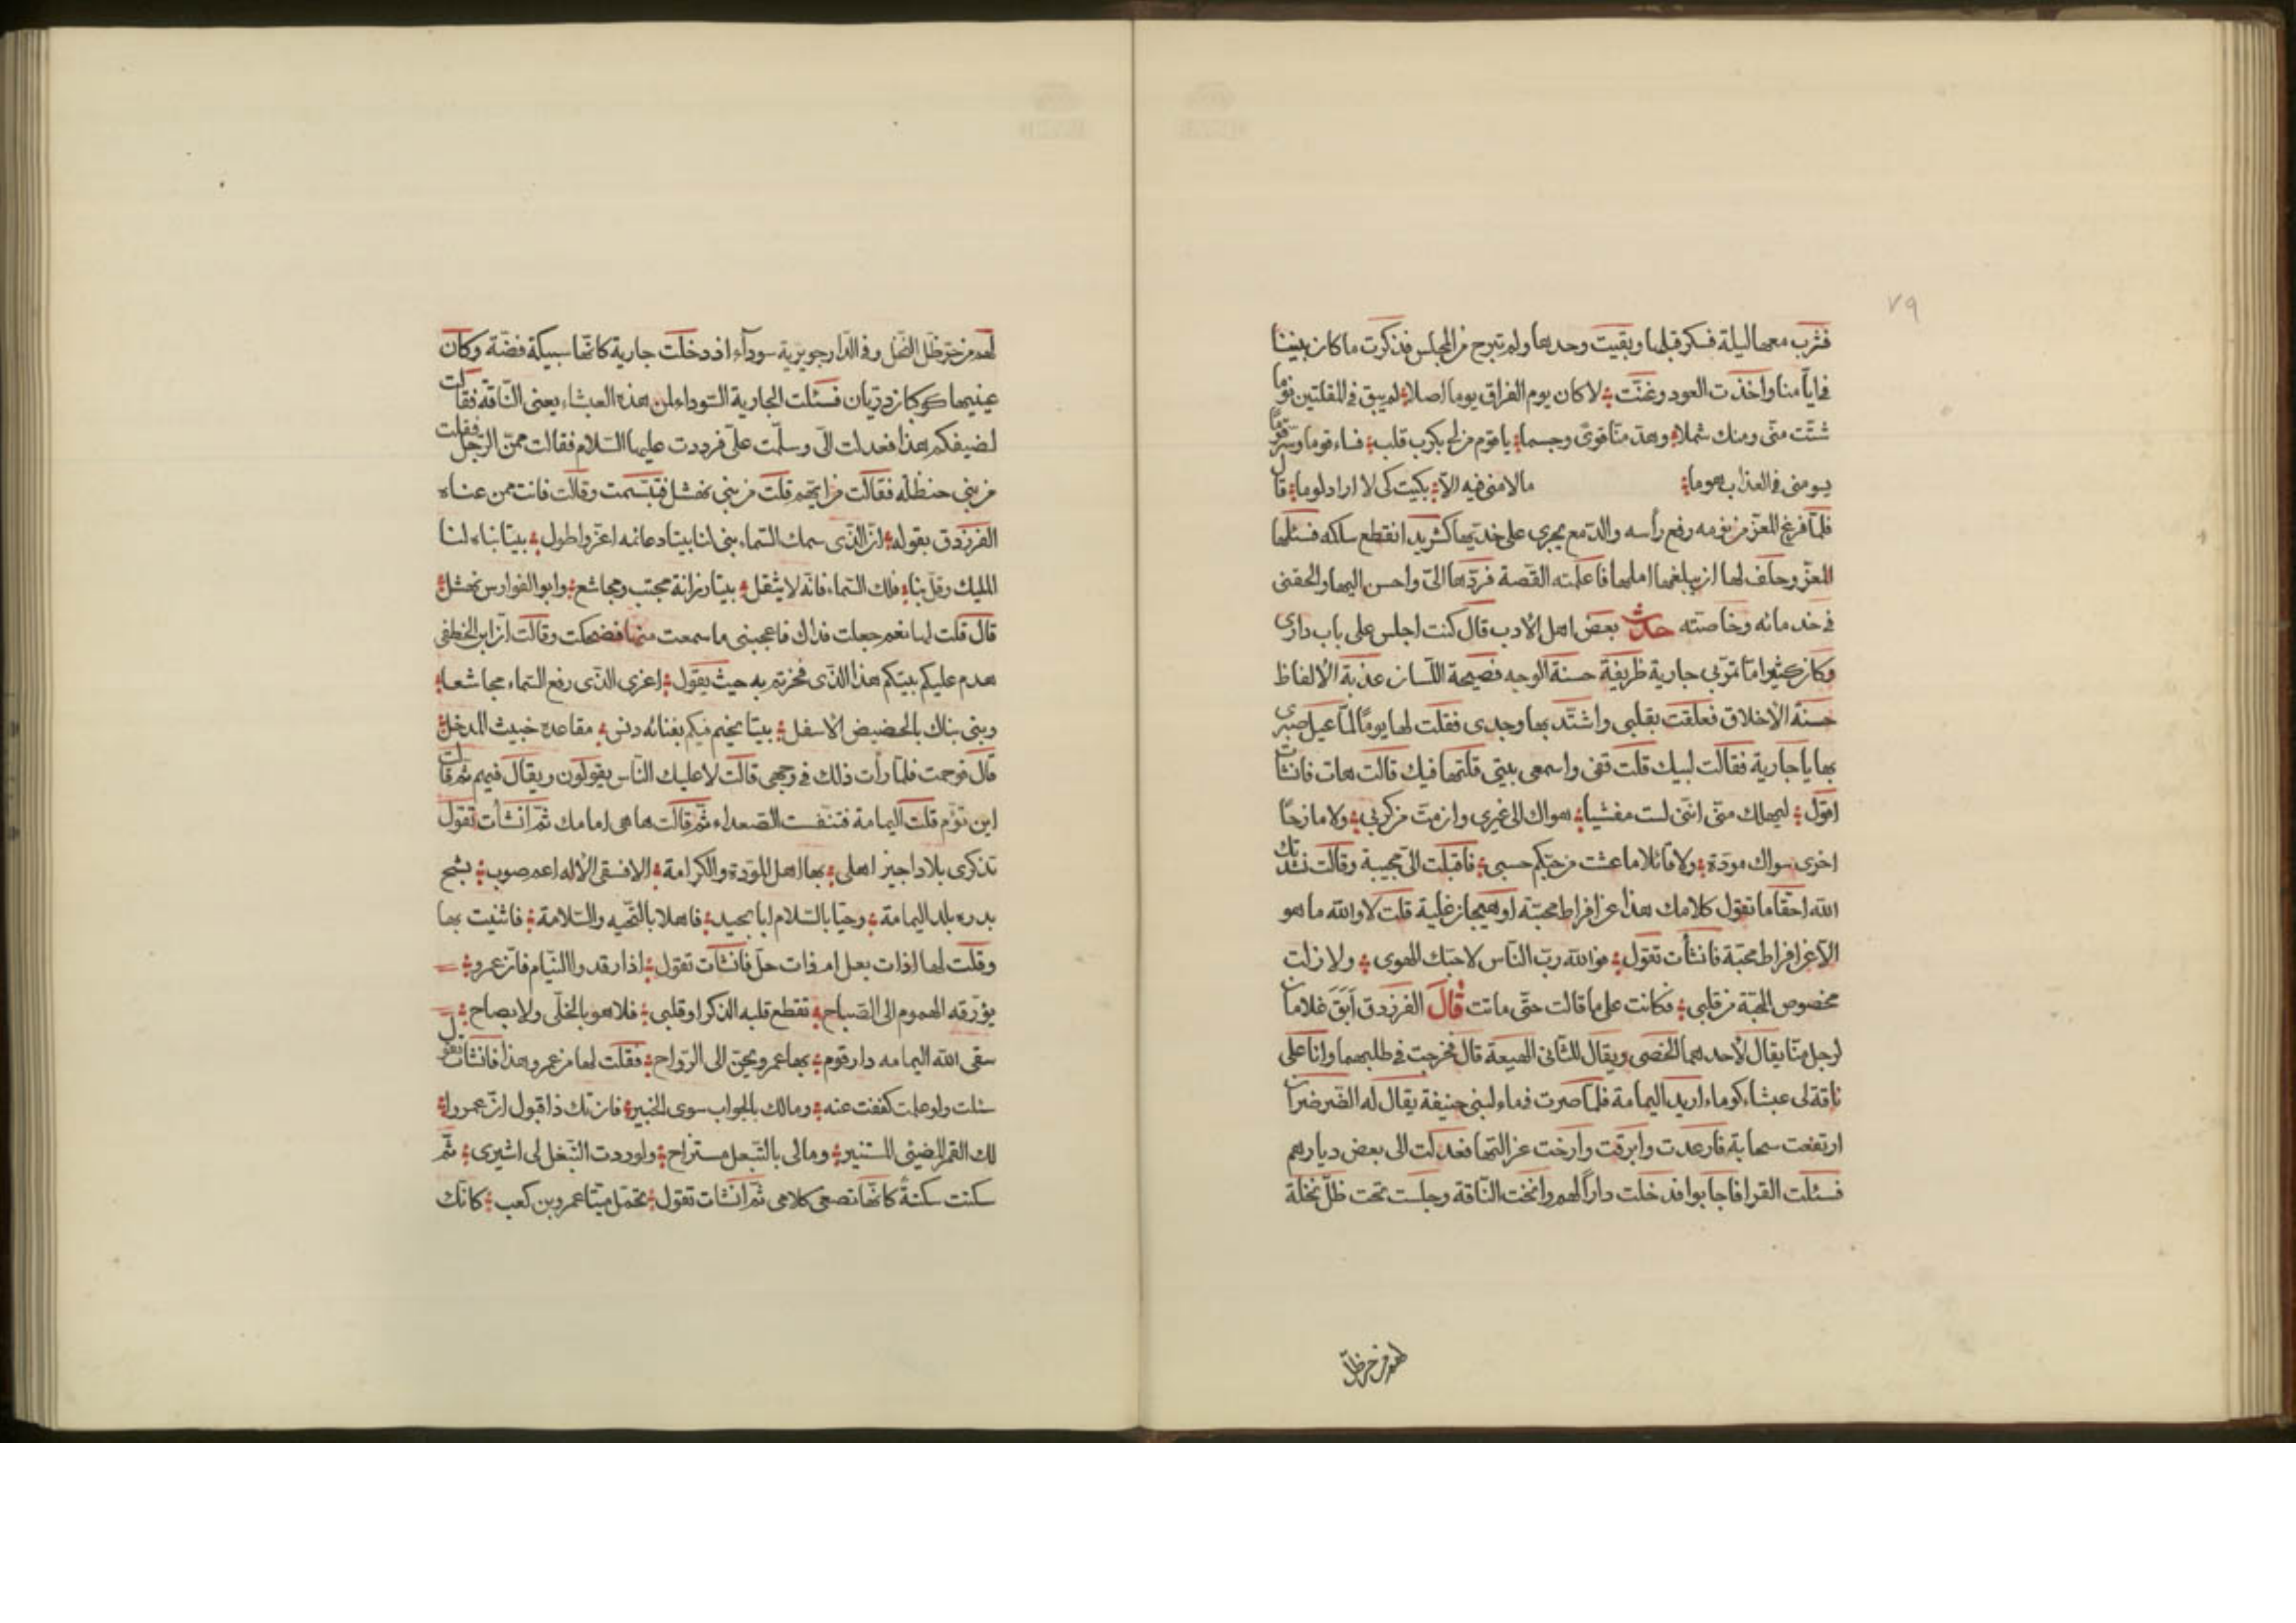 ٧٩
فشرب معها ليلة فسكر قبلها وبقيت وحدها ولم تبرح من المجلس فذكرت ما كان بيننا
فى ايامنا واخذت العود وغنّت لا كان يوم الفراق يوما اصلا لم يبق فى المقلتين نوما
شتّت منّى ومنك شملا وهدّ منّا قوىً وجسما يا قوم من لى بكرب قلب فساء قوما وسرّ قوما
يومنى فى العذاب هوما ما لامنى فيه الا بكيت كى لا اراد لوما قال
فلمّا فرغ المعزّ من نومه رفع رأسه والدّمع يجرى على خدّيها كشريد انقطع سلكه فسئلها
المعزّ وحلف لها ان يبلغها املها فاعلمته القصة فردّها الىّ واحسن اليها والحقنى
فى خدمانه وخاصّته حدث بعض اهل الادب قال كنت اجلس على باب دارى
وكان كثيرا ما تمرّ بى جارية ظريفة حسنة الوجه فصيحة اللّسان عذبة الالفاظ
حسنة الاخلاق فعلقت بقلبى واشتدّ بها وجدى فقلت لها يوما لمّا عيل صبرى
بها يا جارية فقالت لبيك قلت قفى واسمعى بيتى قلتهما فيك قالت هات فانشأت
اقول ليهلك منّى انّنى لست مفشيا هواك الى غيرى وان متّ من كربى ولا مازحا
اخرى سواك مودة ولا قائلا ما عشت من حبّكم حسبى فاقبلت الىّ مجيبة وقالت نشدتك
الله احقّا ما تقول كلامك هذا عن افراط محبّة او هيجان غلبة قلت لا والله ما هو
الا عن افراط محبّة فانشأت تقول فوالله ربّ الناس لاحبّك الهوى ولا زلت
مخصوص المحبّة من قلبى فكانت على ما قالت حتّى ماتت قال الفرزدق ابق غلامان
لرجل منّا يقال لاحدهما الخصى ويقال للثانى الهيعة قال فخرجت فى طلبهما وانا على
ناقة لى عيشاء كوماء اريد اليمامة فلمّا صرت فى ماء لبنى حنيفة يقال له الضّرضران
ارتفعت سحابة فارعدت وابرقت وارخت عزاليها فعدلت الى بعض ديارهم
فسئلت القرا فاجابوا فدخلت داراً لهم وانخت النّاقة وجلست تحت ظلّ نخلة
لهم من جريد ظل
لهم من جريد ظلّ النّخل وفى الدّار جويرية سودآء اذ دخلت جارية كانّها سبيكة فضّة وكان
عينيها كوكبان درّيّان فسئلت الجارية السّوداء لمن هذه العيشاء يعنى النّاقة فقالت
لضيفكم هذا فعدلت الىّ وسلّمت علىّ فرددت عليها السّلام فقالت ممّن الرّجل فقلت
من بنى حنظله فقالت من ايّهم قلت من بنى نهشل فتبسّمت وقالت فانت ممن عناه
الفرزدق بقوله انّ الذّى سمك السّماء بنى لنا بيتا دعائمه اعزّ واطول بيتا بناه لنا
المليك وقلّ بناء فلك السّماء فانّه لا يثقل بيتا زرارة مجتب ومجاشع وابو الفوارس نهشل
قال قلت لها نعم جعلت فداك فاعجبنى ما سمعت منها فضحكت وقالت ان ابن الخطفى
هدم عليكم بيتكم هذا الذّى فخرتم به حيث يقول اعزى الذّى رفع السّماء مجاشعا
وبنى بناك بالحضيض الاسفل بيتا يخيم فيكم بفنائه دنس مقاعده خبيث المدخل
قال فوجمت فلمّا رأت ذلك فى وجهى قالت لا عليك النّاس يقولون ويقال فيهم ثم قالت
اين تؤم قلت اليمامة فتنفّست الصّعداء ثمّ قالت ها هى امامك ثمّ انشأت تقول
تذكرى بلادا جير اهلى بها اهل المودة والكرامة الا فسقى الاله اعم صوب بسّح
بدره بلد اليمامة وحيّا بالسّلام ابا بجيد فاهلا بالتّحيه والسّلامة فانثنيت بها
وقلت لها اذات بعل ام ذات حلّ فانشأت تقول اذا رقدوا النّيام فانّ عمرو
يؤرّقه الهموم الى الصّباح تقطع قلبه الذكر او قلبى فلا هو بالخلّى ولا بصاح
سقى الله اليمامه دار قوم بها عمرو يحنّ الى الرّواح فقلت لها من عمرو هذا فانشأت تقول
سئلت ولو علمت كففت عنه ومالك بالجواب سوى الخبير فان تك ذا قبول انّ عمروا
لك القمر المضيئ المستنير ومالى بالتّبعل مستراح ولو رددت النّبعل لى اسيرى ثمّ
سكنت سكنةً كانّها تصغى كلامى ثمّ انشأت تقول تحمّل ميتا عمرو بن كعب كانّك